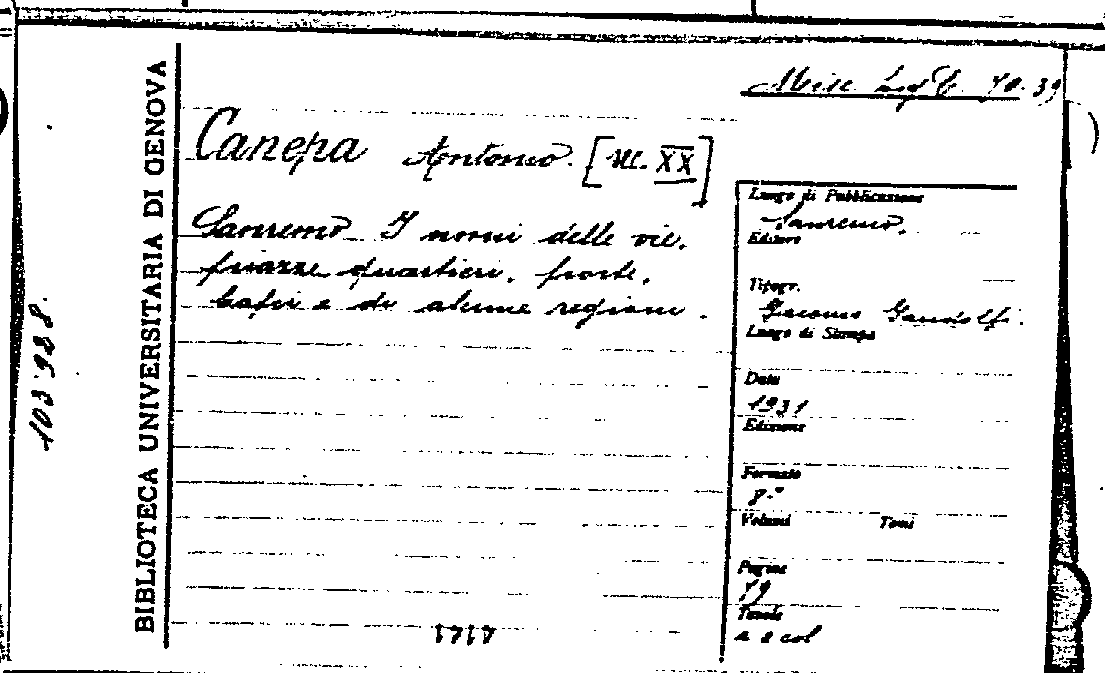 BIBLIOTECA UNIVERSITARIA DI GENOVA
103988.
Misc. Lig. 40.39
Canepa Antonio. [sec. XX]
Sanremo I nomi delle vie,
piazze quartieri, porte,
e di alcune regioni.
Luogo di Pubblicazione
Sanremo.
Editore
Tipogr.
Giacomo Gandolfi.
Luogo di Stampa
Data
1931
Edizione
Formato
8.°
Volumi Tomi
Pagine
79
Tavole
a 2 col